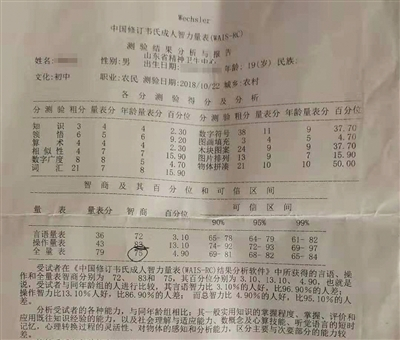 Wechsler
中国修订韦氏成人智力量表(WAIS-RC)
测验结果分析与报告
山东省精神卫生中心
姓名: 性别:男 出生日期: 年龄:19(岁) 民族:
文化:初中 职业:农民 测验日期:2018/10/22 城乡:农村
各分测验得分及分析
分测验 粗分 量表分 年龄量表分 百分位 分测验 粗分 量表分 年龄量表分 百分位
知识 3 4 4 2.30 数字符号 38 11 9 37.70
领悟 6 5 5 图画填充 3 4 4
算术 4 4 4 2.30 木块图案 24 9 9 37.70
相似性 4 7 7 15.90 图片排列 13 9 7 15.90
数字广度 8 8 5 物体拼凑 21 10 10 50.00
词汇 21 7 8 15.90
智商及其百分位和可信区间
量表 量表分 智商 百分位 可信区间
90% 95% 99%
言语量表 36 72 3.10 65- 78 64- 79 61- 82
操作量表 43 83 13.10 74- 92 72- 93 69- 97
全量表 79 75 4.90 69- 81 68- 82 65- 84
受试者在《中国修订韦氏成人智力量表(WAIS-RC)结果分析软件》中所获得的言语、操
作和全量表智商分别为 72、 83和 75, 其百分位分别为 3.10, 13.10, 4.90. 也就是
说, 受试者与同年龄组的人进行比较, 其言语智力比 3.10%的人好, 比96.90%的人差;
操作智力比13.10%的人好, 比86.90%的人差; 而总智力比 4.90%的人好, 比95.10%的人
差。
分析受试者的各种能力, 与同年龄组相比: 其一般实用知识的掌握程度、掌握、评价和
应用既往知识经验的能力、以及社会理解与适应能力、数概念及心算技能、听觉语言的短时
记忆、心理转换过程的灵活性、对物体的感知和分析能力、区分主要与次要部分的能力较
差。